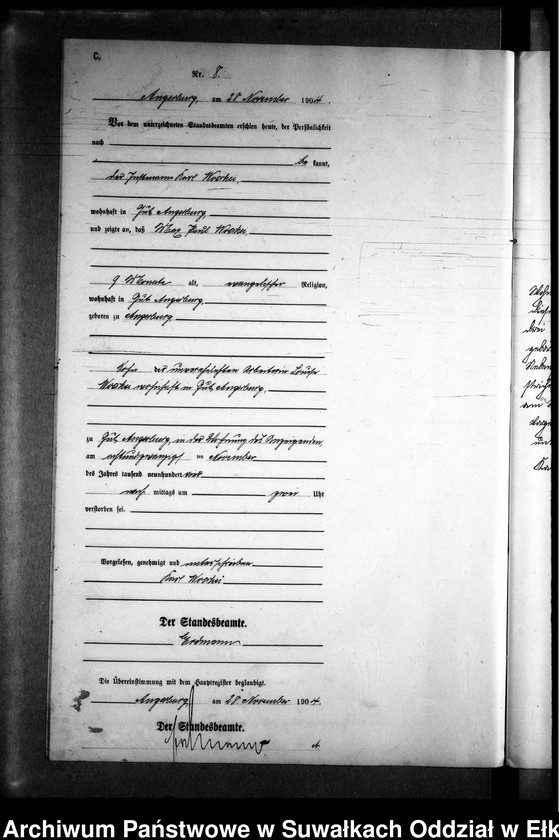 C.
Nr. 8.
Angerburg, am 28 November 1904.
Vor dem unterzeichneten Standesbeamten erschien heute, der Persönlichkeit
nach
be kannt,
der Instmann Karl
wohnhaft in Gut Angerburg,
und zeigte an, daß Max Paul
9 Monate alt, evangelischer Religion,
wohnhaft in Gut Angerburg,
geboren zu Angerburg
Sohn der unverehelichten Arbeiterin Louise
wohnhaft in Gut Angerburg,
zu Gut Angerburg, in der Wohnung des Anzeigenden,
am achtundzwanzigsten November
des Jahres tausend neunhundert vier
nach mittags um zwei Uhr
verstorben sei.
Vorgelesen, genehmigt und unterschrieben
Karl
Der Standesbeamte.
Erdmann
Die Übereinstimmung mit dem Hauptregister beglaubigt.
Angerburg, am 28 November 1904.
Der Standesbeamte.
Archiwum Państwowe w Suwałkach Oddział w Ełk